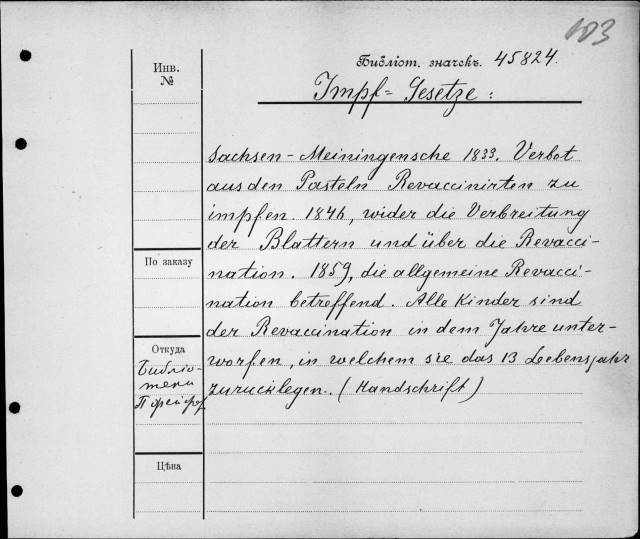 103
Инв.
№
Библіот. значекъ. 45824.
Impf = Gesetze :
Sachsen - Meiningensche 1833. Verbot
aus den Pasteln Revaccinirten zu
impfen. 1846, wider die Verbreitung
der Blattern und über die Revacci-
nation. 1859, die allgemeine Revacci-
nation betreffend. Alle Kinder sind
der Revaccination in dem Jahre unter-
worfen, in welchem sie das 13 Lebensjahr
zurücklegen. (Handschrift)
По заказу
Откуда
Библіо-
теки
Цѣна